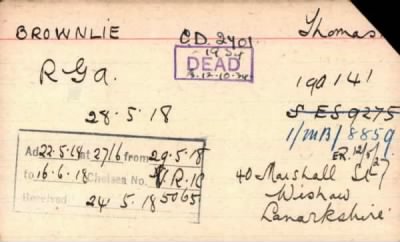 BROWNLIE
C.D. 2401.
Thomas
DEAD
RGa.
190141
28.5.18
S ES9275
1/MB/8859
Ad 22.5.18 at 27/6 from 29.5.18
to 16.6.18 Chelsea No.
Received 24 5.18 5065
40 Marshall St
Wishaw
Lanarkshire.